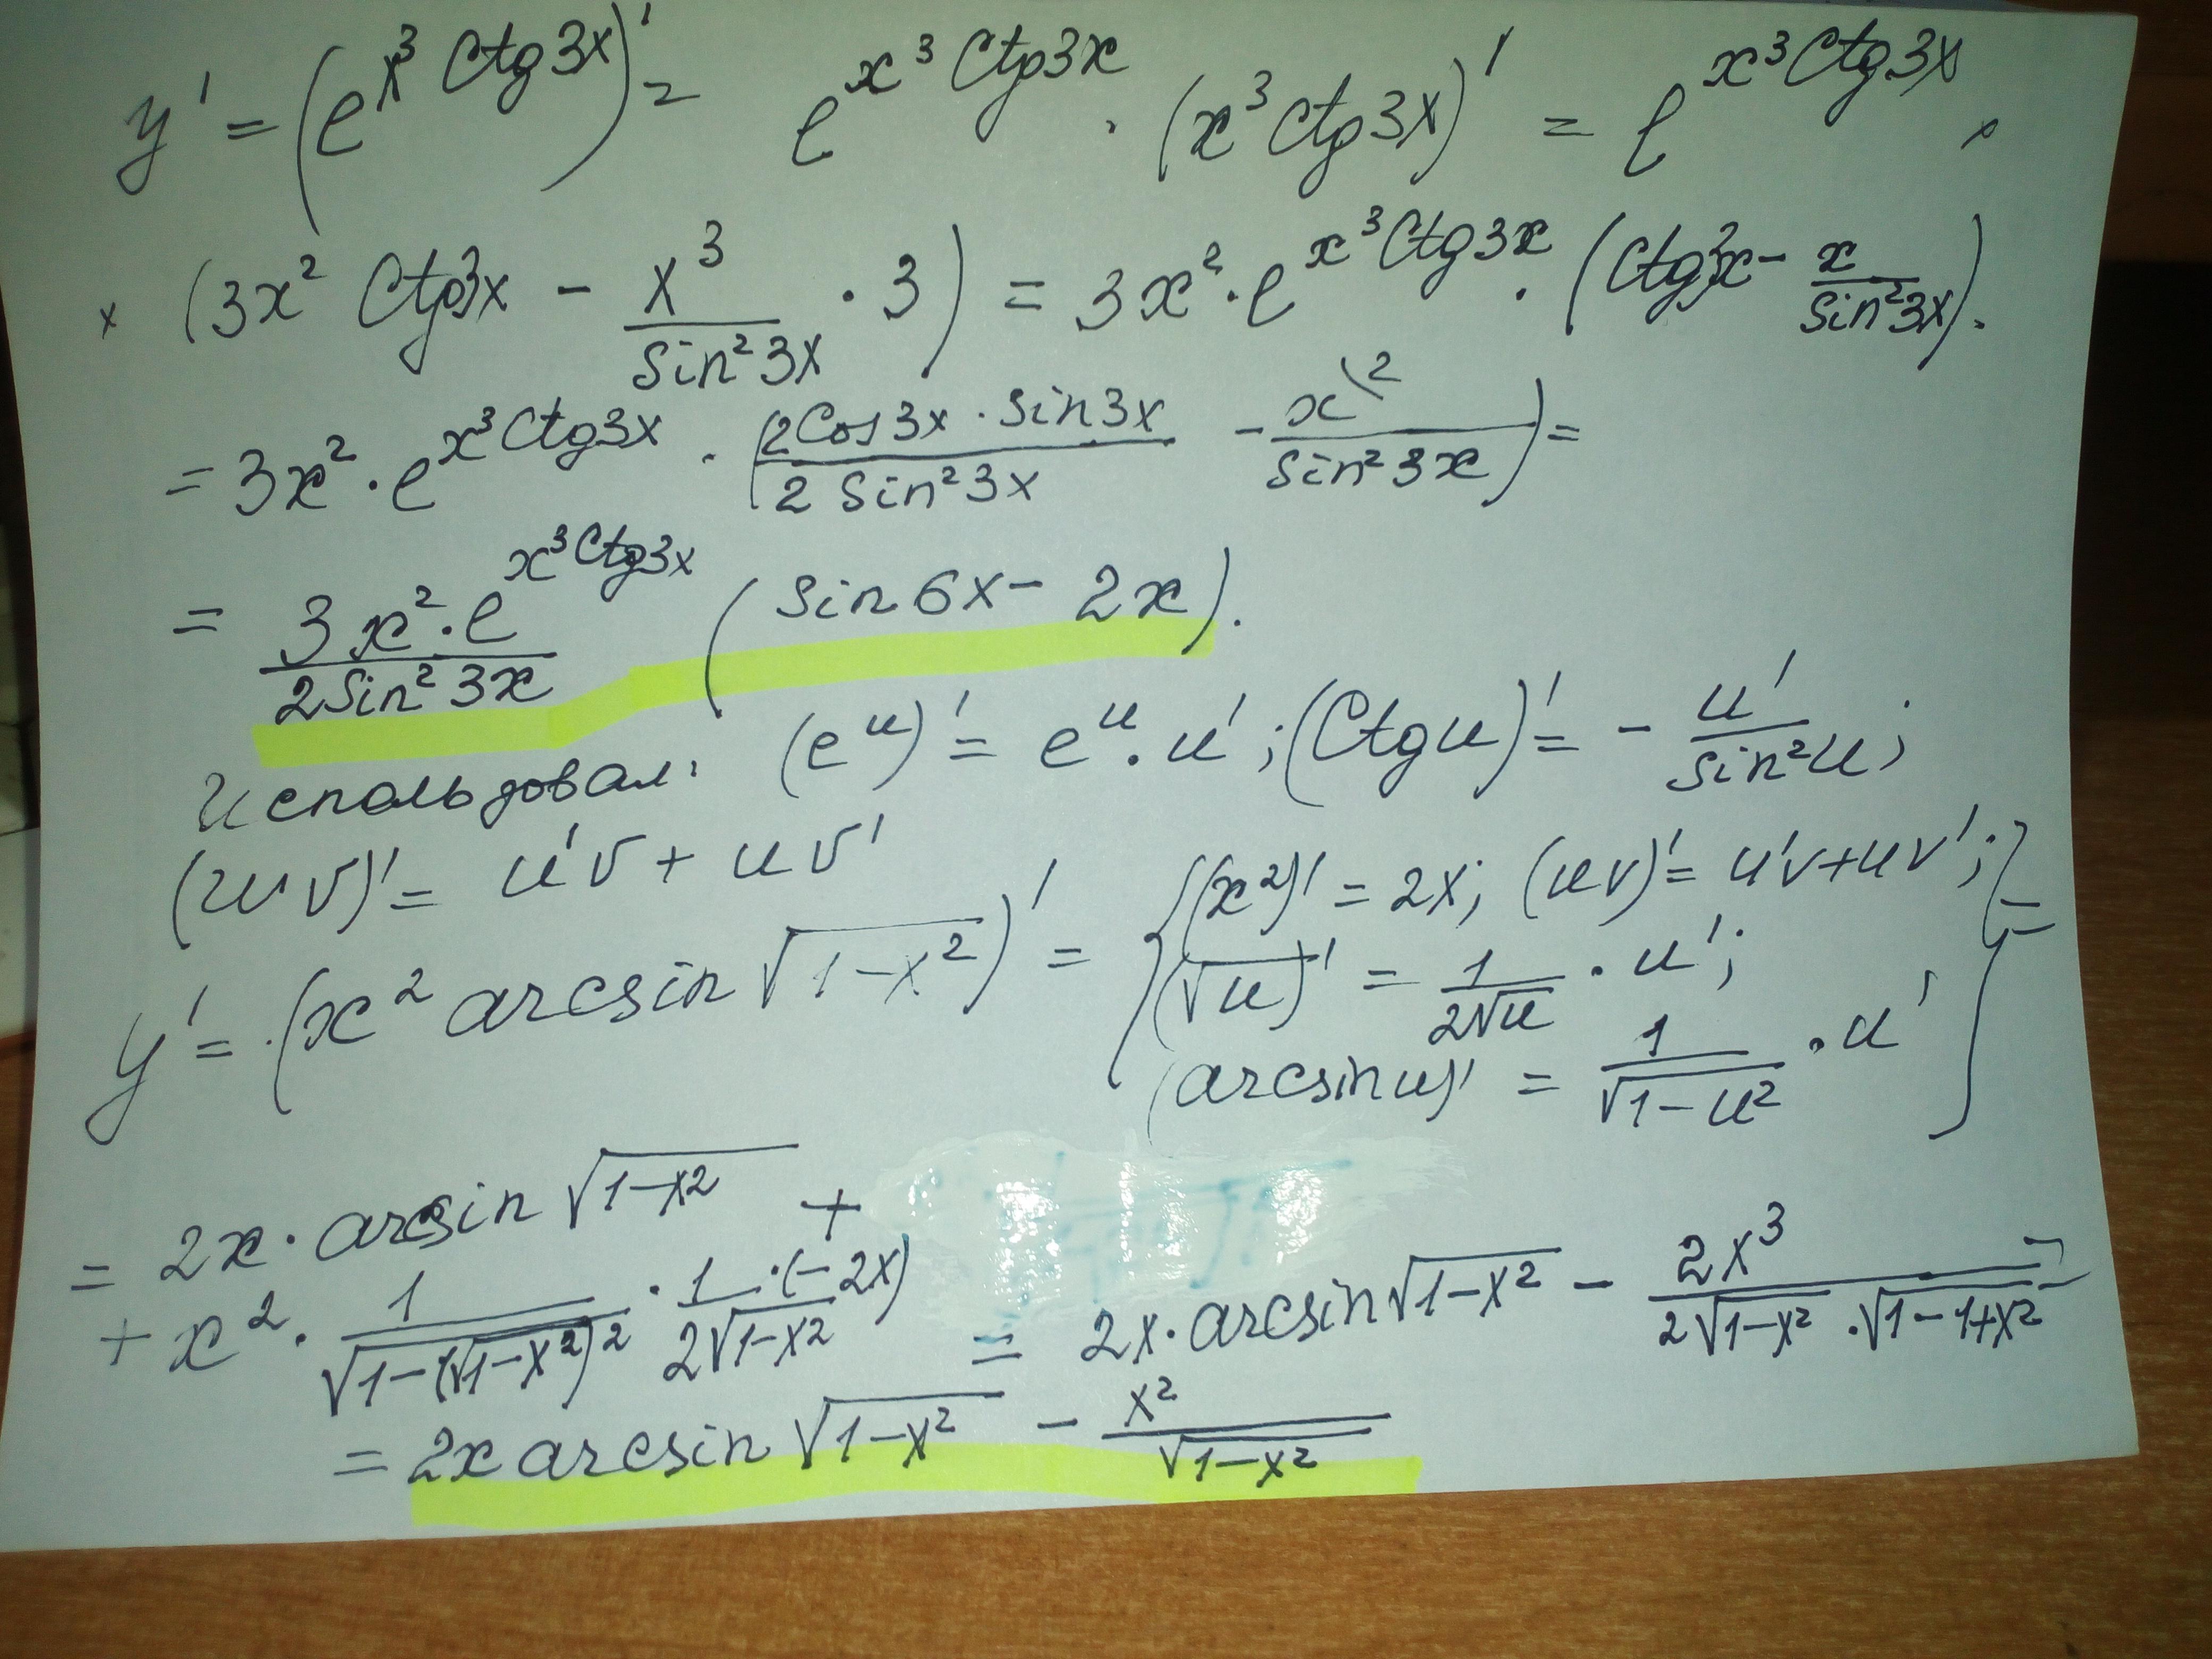 y' = (e^{x³ Ctg3x})' = e^{x³ Ctg3x} · (x³ Ctg3x)' = e^{x³ Ctg3x} ×
× (3x² Ctg3x − x³/sin²3x · 3) = 3x² · e^{x³ Ctg3x} · (Ctg3x − x/sin²3x).
= 3x² · e^{x³ Ctg3x} · (2Cos3x · sin3x / 2Sin²3x − x\²/sin²3x) =
= 3x² · e^{x³ Ctg3x} / 2Sin²3x (sin6x − 2x).
использовал: (e^u)' = e^u · u'; (Ctgu)' = − u'/sin²u;
(uv)' = u'v + uv'
y' = (x² arcsin √(1−x²))' = {(x²)' = 2x; (uv)' = u'v+uv';
(√u)' = 1/(2√u) · u';
(arcsinu)' = 1/√(1−u²) · u'} =
= 2x · arcsin √(1−x²) +
+ x² · 1/√(1−(√(1−x²))²) · 1/(2√(1−x²)) · (−2x) = 2x · arcsin√(1−x²) − 2x³/(2√(1−x²) · √(1−1+x²)) =
= 2x arcsin √(1−x²) − x²/√(1−x²)